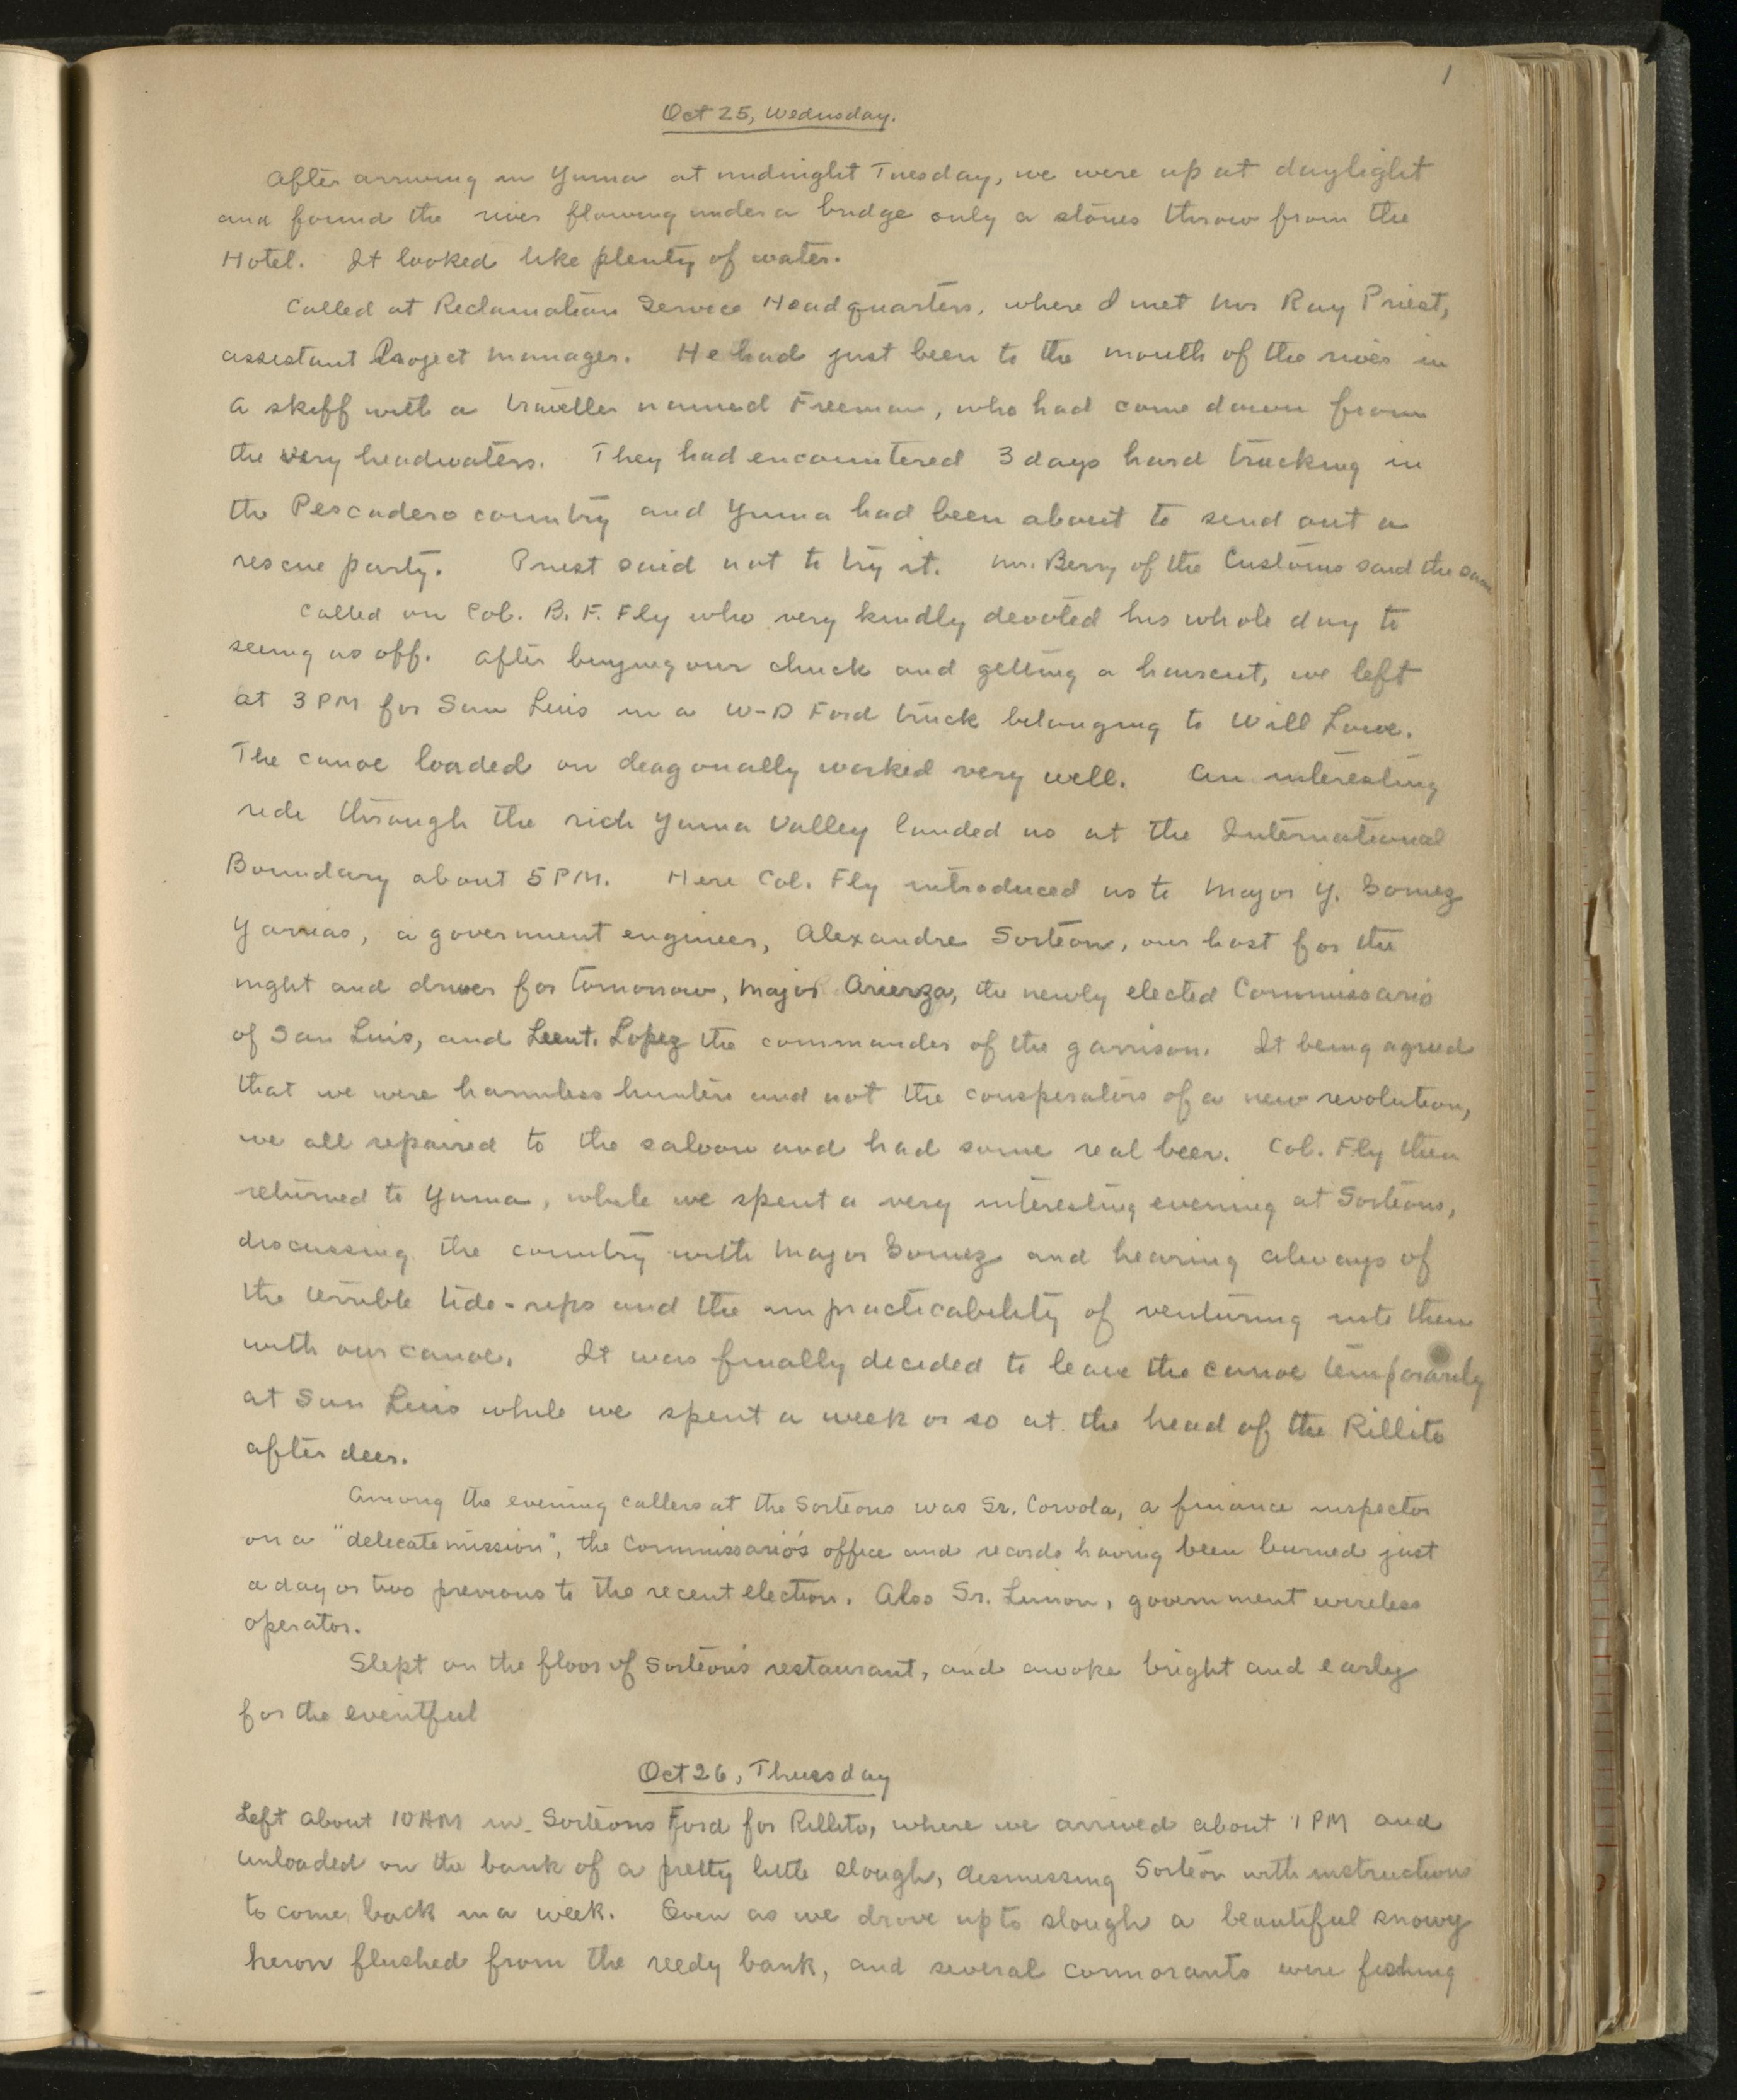 1
Oct 25, Wednesday.
After arriving in Yuma at midnight Tuesday, we were up at daylight
and found the river flowing under a bridge only a stones throw from the
Hotel. It looked like plenty of water.
Called at Reclamation Service Headquarters, where I met Mr Ray Priest,
assistant Project manager. He had just been to the mouth of the river in
a skiff with a traveller named Freeman, who had come down from
the very headwaters. They had encountered 3 days hard tracking in
the Pescadero country and Yuma had been about to send out a
rescue party. Priest said not to try it. Mr. Berry of the Customs said the same
Called on Col. B. F. Fly who very kindly devoted his whole day to
seeing us off. After buying our chuck and getting a haircut, we left
at 3 PM for San Luis in a W-D Ford truck belonging to Will Lowe.
The canoe loaded on diagonally worked very well. An interesting
ride through the rich Yuma Valley landed us at the International
Boundary about 5 PM. Here Col. Fly introduced us to Major Y. Gomez
Yarrias, a government engineer, Alexandre Sorteon, our host for the
night and driver for tomorrow, Major Arierza, the newly elected Commissario
of San Luis, and Leeut. Lopez the commander of the garrison. It being agreed
that we were harmless hunters and not the conspirators of a new revolution,
we all repaired to the saloon and had some real beer. Col. Fly then
returned to Yuma, while we spent a very interesting evening at Sorteons,
discussing the country with Major Gomez and hearing always of
the terrible tide-rips and the impracticability of venturing into them
with our canoe. It was finally decided to leave the canoe temporarily
at San Luis while we spent a week or so at the head of the Rillito
after deer.
Among the evening callers at the Sorteons was Sr. Corvola, a finance inspector
on a "delicate mission", the Commissario's office and records having been burned just
a day or two previous to the recent election. Also Sr. Limon, government wireless
operator.
Slept on the floor of Sorteon's restaurant, and awoke bright and early
for the eventful
Oct 26, Thursday
Left about 10 AM in Sorteons Ford for Rillito, where we arrived about 1 PM and
unloaded on the bank of a pretty little slough, dismissing Sorteon with instructions
to come back in a week. Even as we drove up to slough a beautiful snowy
heron flushed from the reedy bank, and several cormorants were fishing